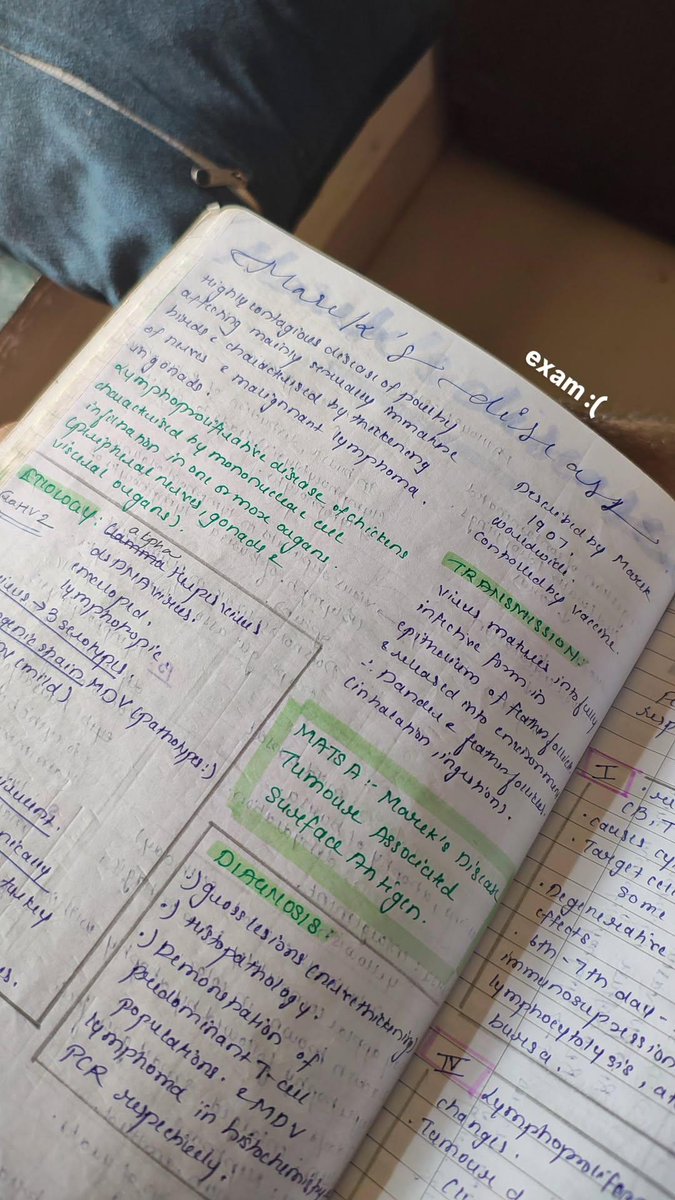 Marek's disease
exam :(
Highly contagious disease of poultry
affecting mainly sexually immature
birds & characterised by thickening
of nerves & malignant lymphoma
in gonads.
Lymphoproliferative disease of chickens
characterised by mononuclear cell
infiltration in one or more organs.
(peripheral nerves, gonads &
visceral organs)
Described by Marek
1907.
worldwide.
Controlled by vaccine.
ETIOLOGY:
GaHV2
alpha
Gamma Herpesvirus
dsDNA virus.
enveloped,
lymphotropic
→ 3 serotypes
strain MDV (pathotype:)
(mild)
TRANSMISSION:
virus matures into fully
infective form in
epithelium of feather follicles
& released into environment
∴ Dander & feather follicles.
(inhalation, ingestion).
MATSA :- Marek's Disease
Tumour Associated
Surface Antigen.
DIAGNOSIS:
·) gross lesions (nerve thickening)
·) Histopathology.
·) Demonstration of
predominant T-cell
populations. & MDV
lymphoma in histochemistry
PCR respectively.
I
causes
Target cell
some
Degenerative
effects
6th-7th day-
immunosupression
lymphocytolysis,
bursa.
IV
changes.
Tumour